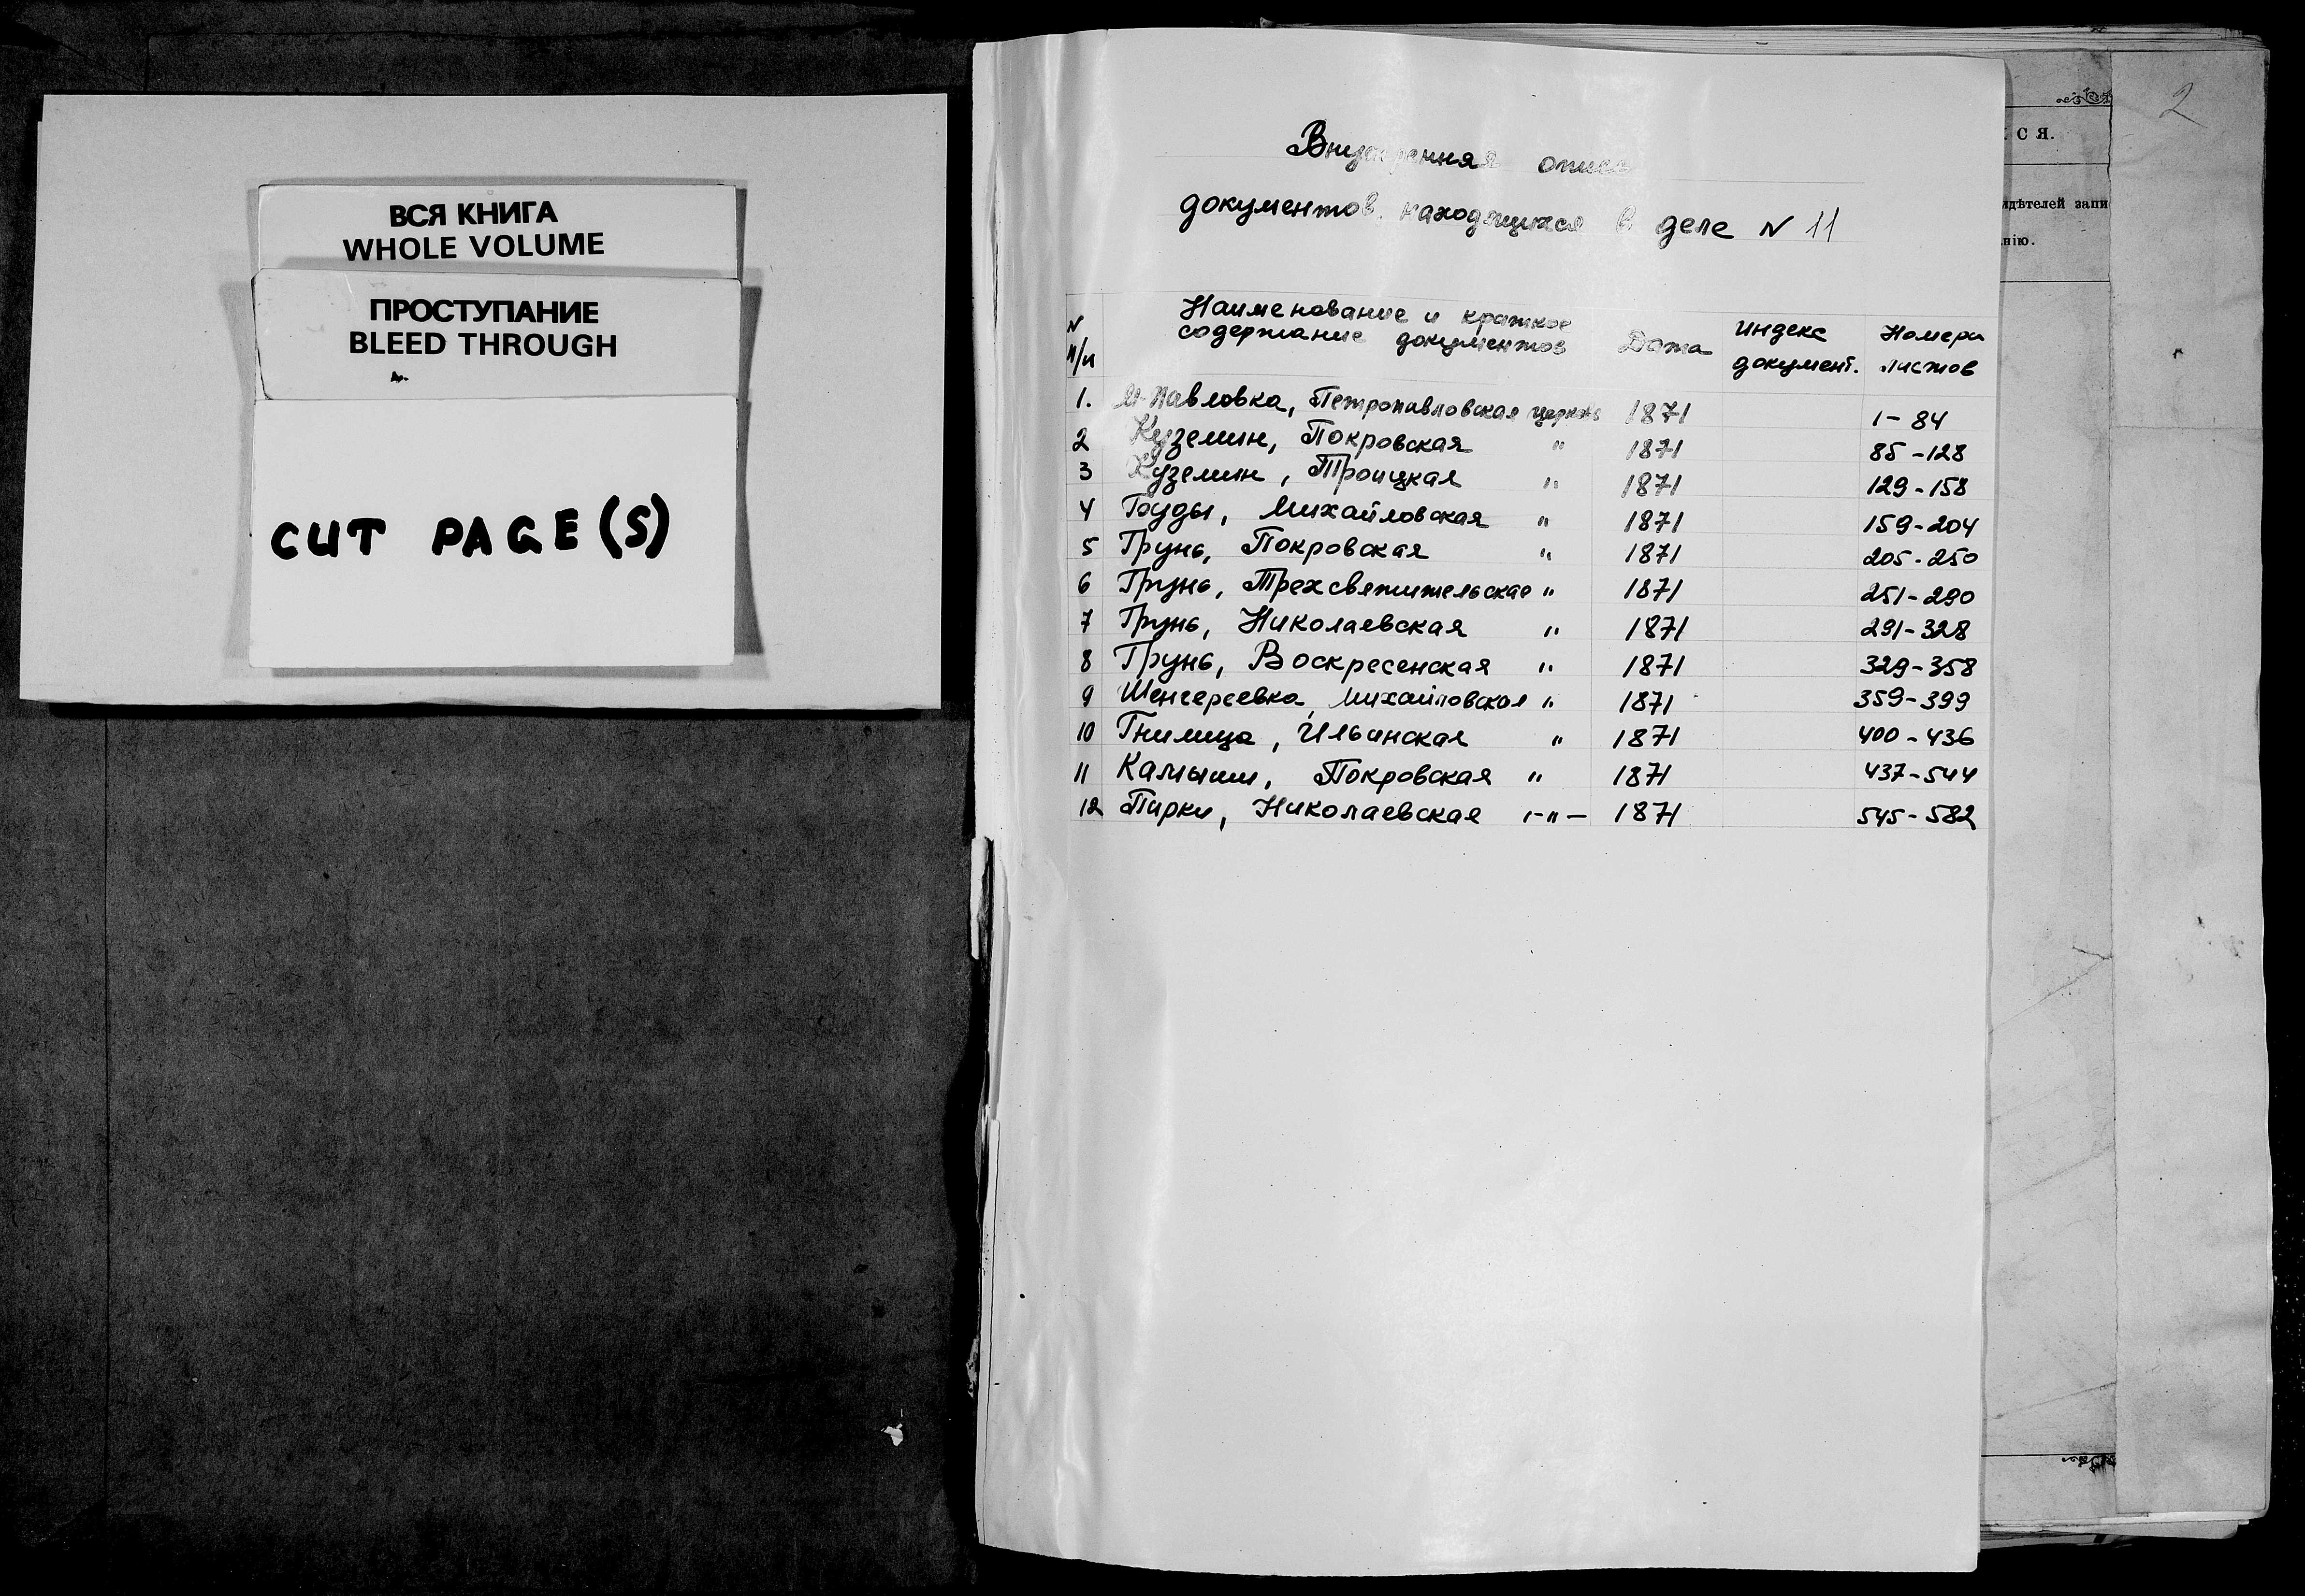 ВСЯ КНИГА
WHOLE VOLUME
ПРОСТУПАНИЕ
BLEED THROUGH
CUT PAGE(S)
Внутренняя опись
документов, находящихся в деле N 11
N п/п Наименование и краткое содержание документов Дата индекс документ. Номера листов
1. М-Павловка, Петропавловская церковь 1871 1-84
2 Куземин, Покровская " 1871 85-128
3 Куземин, Троицкая " 1871 129-158
4 Буды, Михайловская " 1871 159-204
5 Грунь, Покровская " 1871 205-250
6 Грунь, Трехсвятительская " 1871 251-290
7 Грунь, Николаевская " 1871 291-328
8 Грунь, Воскресенская " 1871 329-358
9 Шенгереевка, Михайловская " 1871 359-399
10 Гнилица, Ильинская " 1871 400-436
11 Камыши, Покровская " 1871 437-544
12 Пирки, Николаевская -"- 1871 545-582
2
СЯ.
идѣтелей запи
нію.